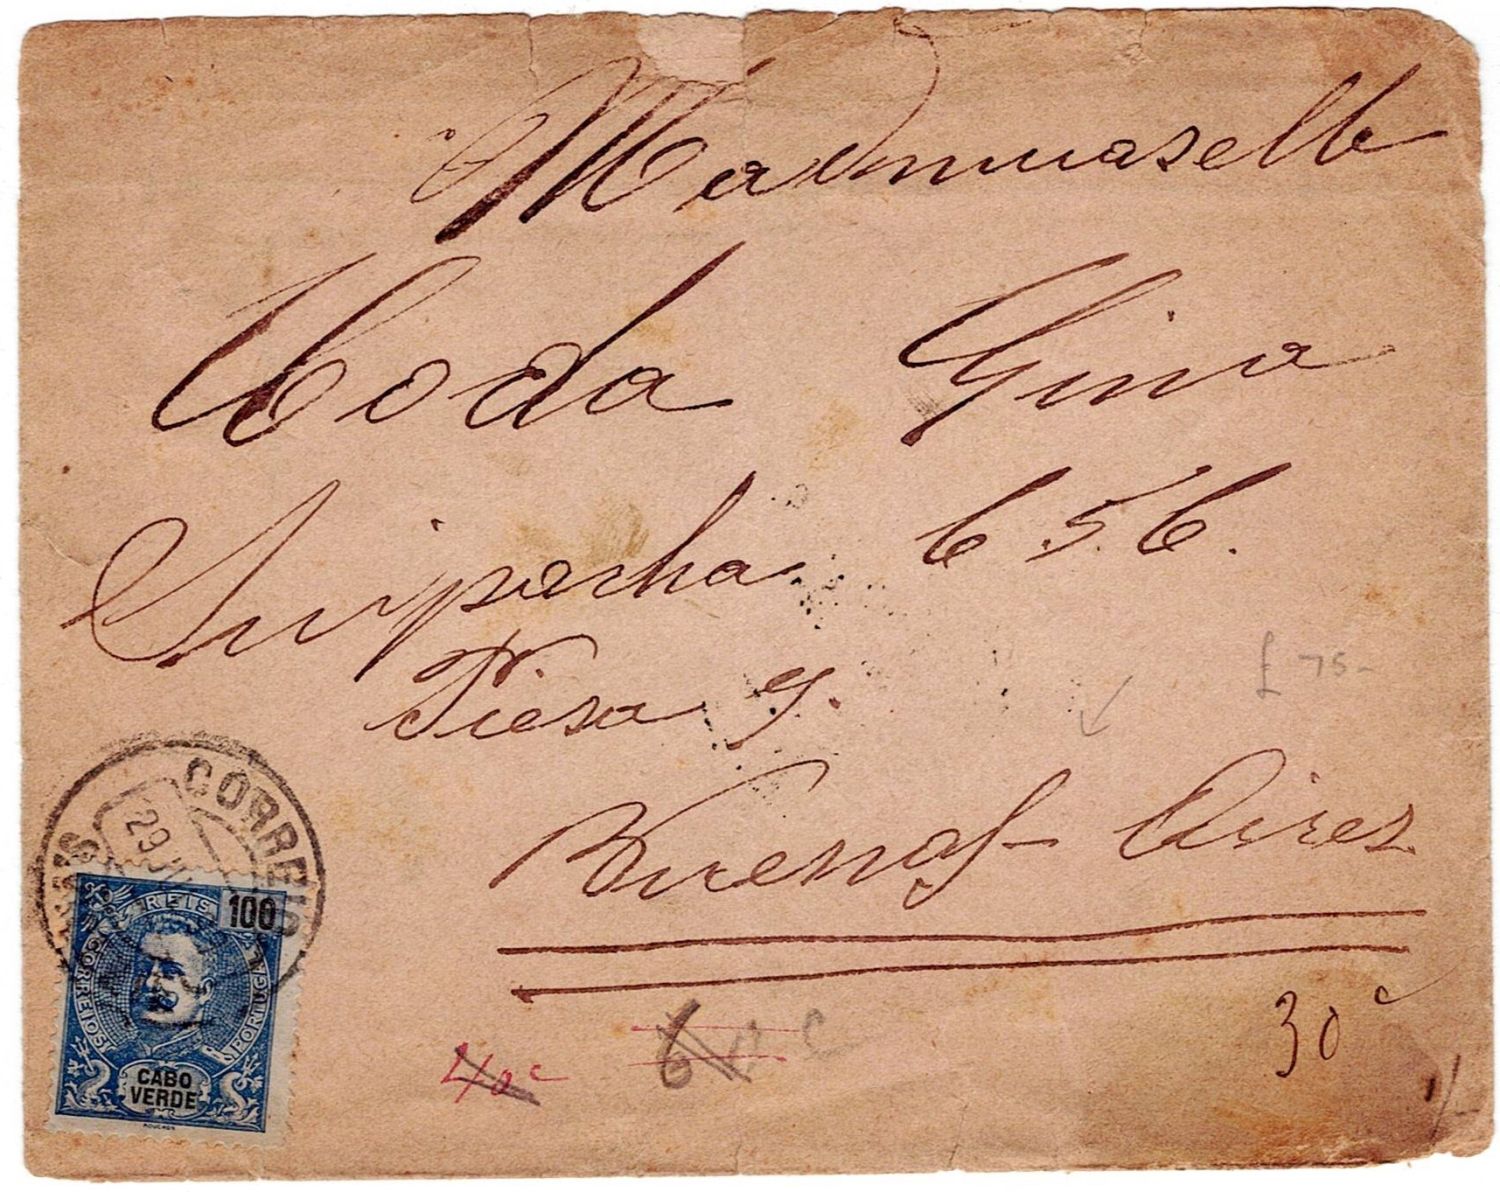 Madmuaselle
Coda Gina
Suipacha 656.
Piesa 9.
Buenos Aires
£ 75-
30c
40c
60c
CORREIO
29 JU
REIS 100
CORREIOS
PORTUGAL
CABO
VERDE
MOUCHON